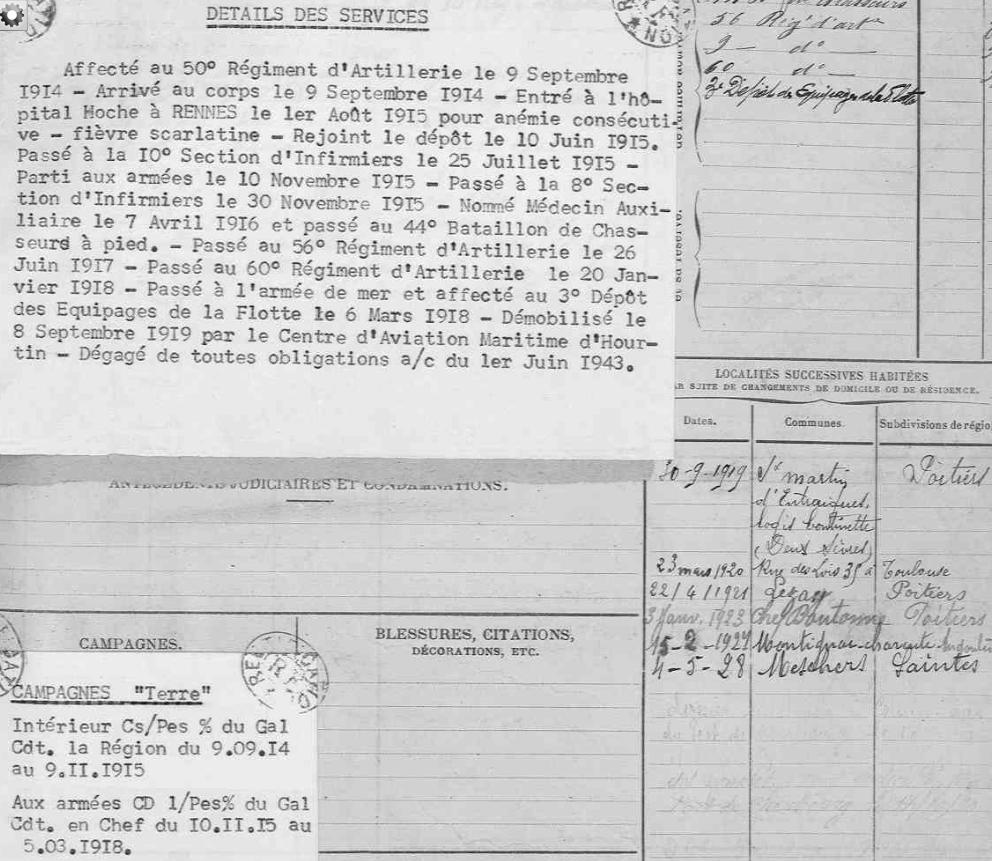 DETAILS DES SERVICES
Affecté au 50° Régiment d'Artillerie le 9 Septembre
I9I4 - Arrivé au corps le 9 Septembre I9I4 - Entré à l'hô-
pital Hoche à RENNES le 1er Août I9I5 pour anémie consécuti-
ve - fièvre scarlatine - Rejoint le dépôt le 10 Juin I9I5.
Passé à la IO° Section d'Infirmiers le 25 Juillet I9I5 -
Parti aux armées le 10 Novembre I9I5 - Passé à la 8° Sec-
tion d'Infirmiers le 30 Novembre I9I5 - Nommé Médecin Auxi-
liaire le 7 Avril I9I6 et passé au 44° Bataillon de Chas-
seurs à pied. - Passé au 56° Régiment d'Artillerie le 26
Juin I9I7 - Passé au 60° Régiment d'Artillerie le 20 Jan-
vier I9I8 - Passé à l'armée de mer et affecté au 3° Dépôt
des Equipages de la Flotte le 6 Mars I9I8 - Démobilisé le
8 Septembre I9I9 par le Centre d'Aviation Maritime d'Hour-
tin - Dégagé de toutes obligations a/c du 1er Juin I943.
56 Rég' d'art
9 - d° -
60 d° -
3e Dépôt des Equipages de la Flotte
ANTÉCÉDENTS JUDICIAIRES ET CONDAMNATIONS.
CAMPAGNES.
CAMPAGNES "Terre"
Intérieur Cs/Pes % du Gal
Cdt. la Région du 9.09.I4
au 9.II.I9I5
Aux armées CD 1/Pes% du Gal
Cdt. en Chef du IO.II.I5 au
5.03.I9I8.
BLESSURES, CITATIONS,
DÉCORATIONS, ETC.
LOCALITÉS SUCCESSIVES HABITÉES
PAR SUITE DE CHANGEMENTS DE DOMICILE OU DE RÉSIDENCE.
Dates. Communes. Subdivisions de régio
30-9-1919 St martin Poitiers
d'Entraigues,
logis
(Deux Sèvres)
23 mars 1920 Rue des Lois 35 à Toulouse
22/4/1921 Lezay Poitiers
3 Janv. 1923 Chef Boutonne Poitiers
15-2-1927 Montignac-charente Angoulê
4-5-28 Meschers Saintes